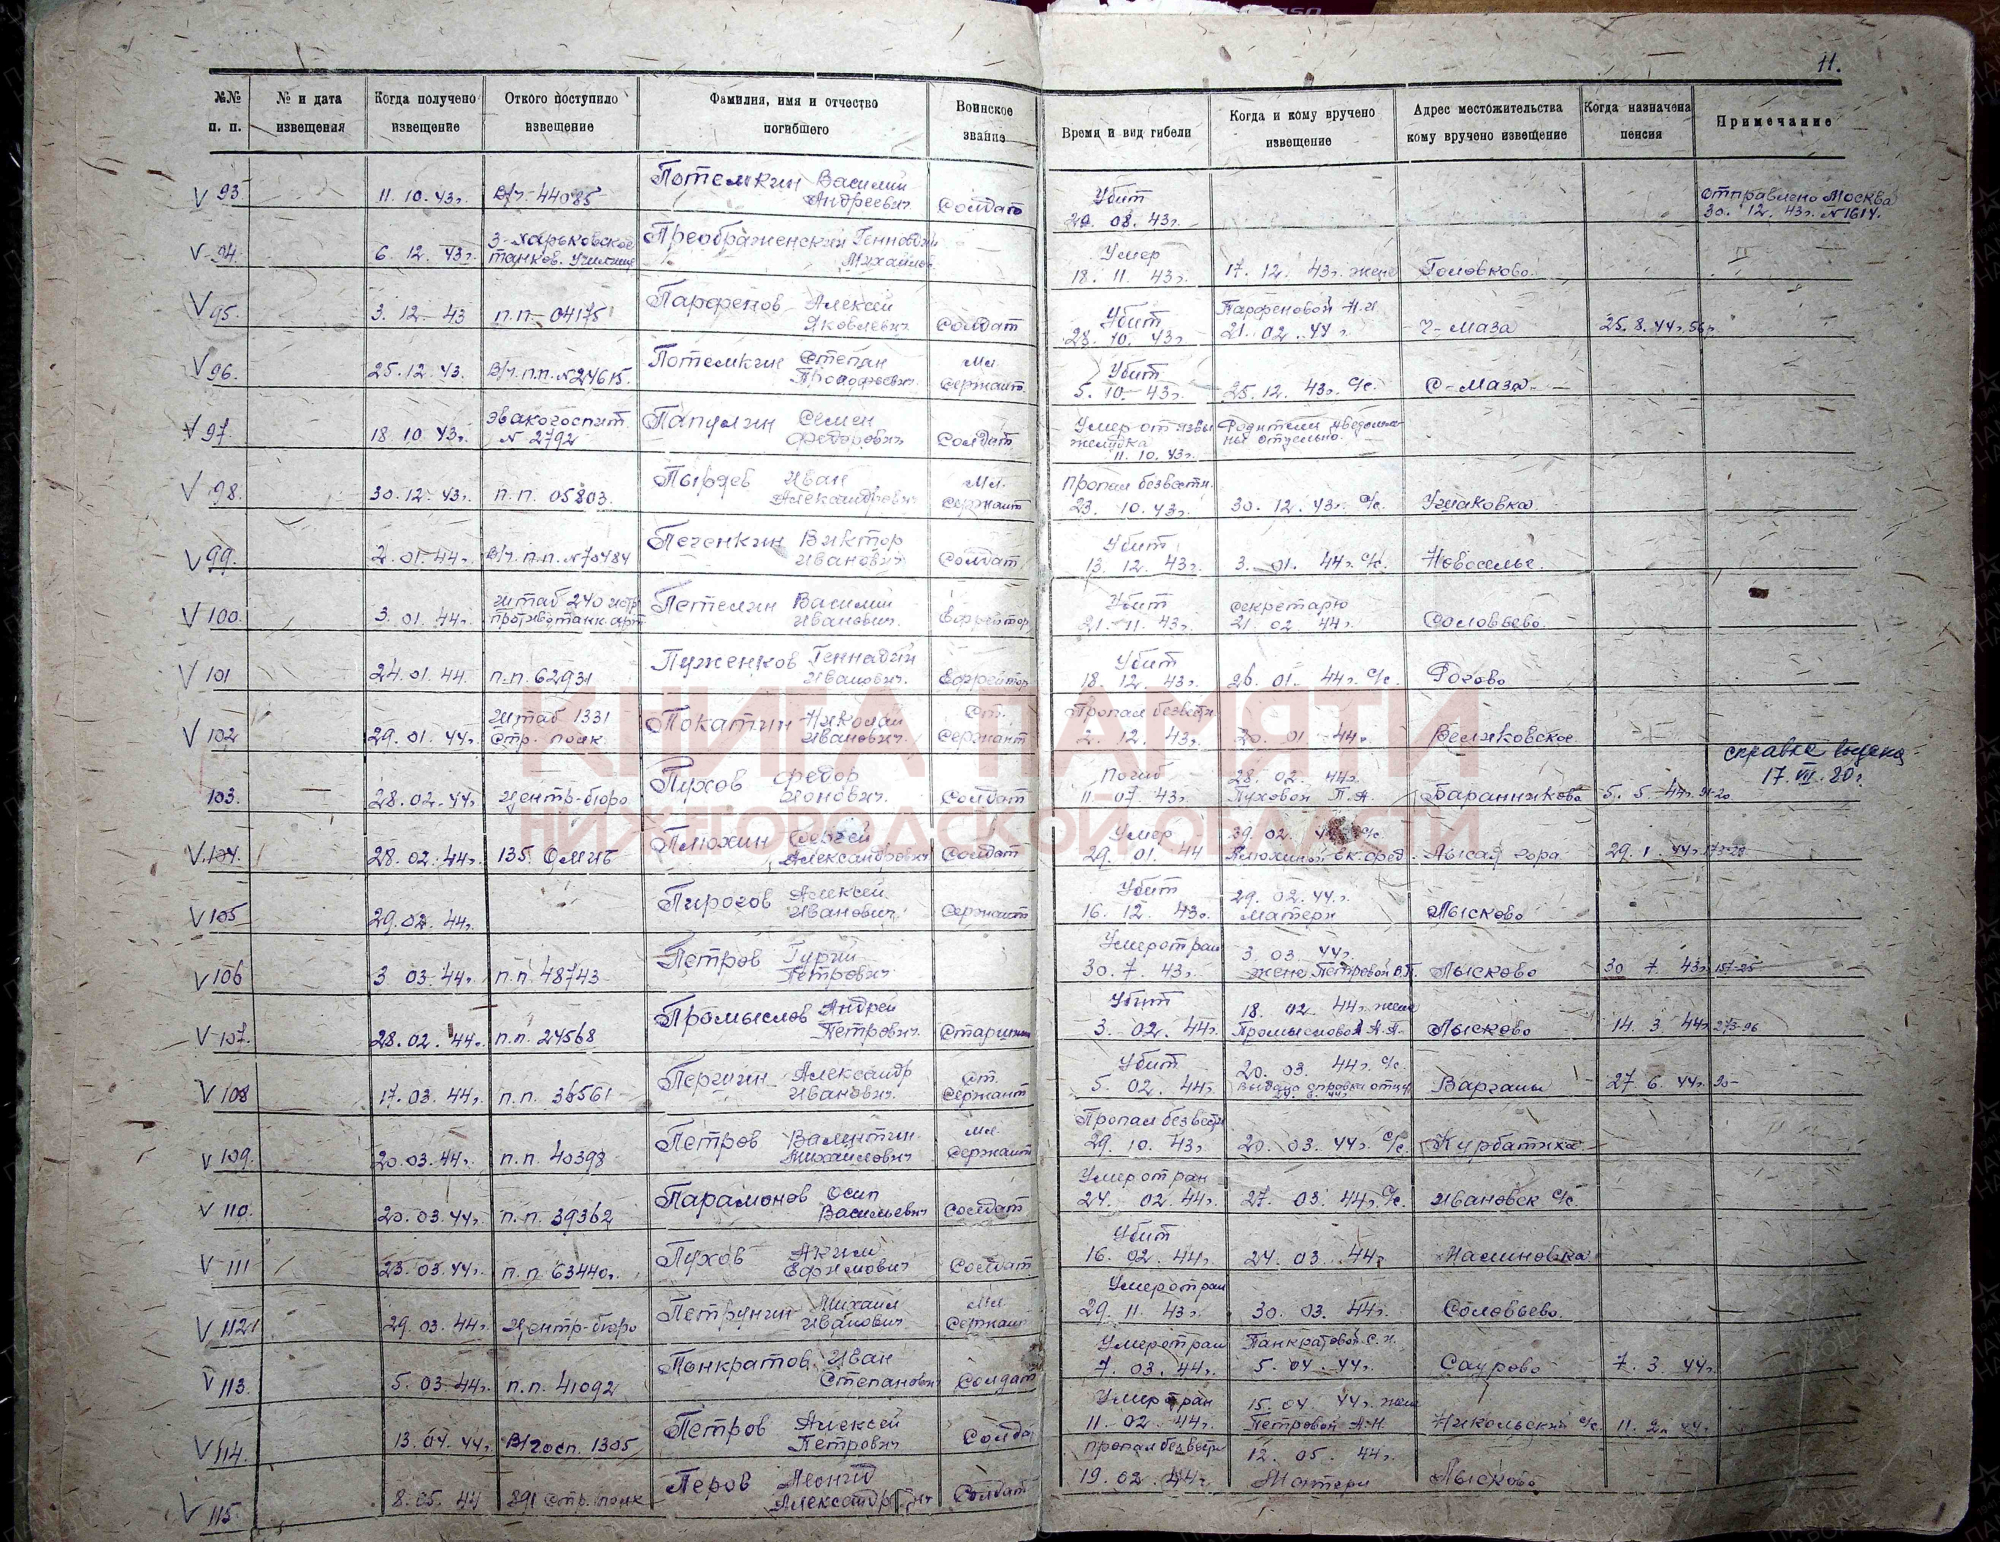 11.
№№ п. п. | № и дата извещения | Когда получено извещение | Откого поступило извещение | Фамилия, имя и отчество погибшего | Воинское звание | Время и вид гибели | Когда и кому вручено извещение | Адрес местожительства кому вручено извещение | Когда назначена пенсия | Примечание
V 93 | 11. 10. 43г. | В/ч. 44085 | Потемкин Василий Андреевич | Солдат | Убит 29. 08. 43г. | отправлено Москва 30. 12. 43г. №1614.
V 94. | 6. 12. 43г. | 3-Харьковское танков. Училище | Преображенский Геннадий Михайлов. | Умер 18. 11. 43г. | 17. 12. 43г. жене | Головково.
V 95. | 3. 12. 43 | п.п. 04175 | Парфенов Алексей Яковлевич | Солдат | Убит 28. 10. 43г. | Парфеновой Н.И. 21. 02. 44г. | Ч-Маза | 25. 8. 44г.
V 96. | 25. 12. 43. | В/ч. п.п. №24615. | Потемкин Степан Прокофьевич | Мл. Сержант | Убит 5. 10. 43г. | 25. 12. 43г. С/с. | С-Маза
V 97. | 18. 10 43г. | Эвакогоспит. № 2792 | Папулин Семен Федорович | Солдат | Умер от язвы желудка 11. 10. 43г. | Родители уведомлены отдельно.
V 98. | 30. 12. 43г. | п.п. 05803. | Пырдев Иван Александрович | Мл. Сержант | Пропал безвести. 23. 10. 43г. | 30. 12. 43г. С/с. | Ушаковка.
V 99. | 2. 01. 44г. | В/ч. п.п. №70484 | Печенкин Виктор Иванович | Солдат | Убит 13. 12. 43г. | 3. 01. 44г. С/с. | Новоселье.
V 100. | 3. 01. 44г. | Штаб 240 истр. противотанк. арт. | Петелин Василий Иванович. | Ефрейтор | Убит 21. 11. 43г. | секретарю 21. 02 44г. | Соловьево.
V 101 | 24. 01. 44. | п.п. 62931 | Пуженков Геннадий Иванович. | Ефрейтор | Убит 18. 12. 43г. | 26. 01. 44г. С/с. | Рогово
V 102 | 29. 01. 44г. | Штаб 1331 Стр. полк | Покатин Николай Иванович. | Ст. Сержант | Пропал безвести 2. 12. 43г. | 20. 01 44г. | Великовское
103. | 28. 02. 44г. | центр-бюро | Пухов Федор Ионович. | Солдат | Погиб 11. 07. 43г. | 28. 02. 44г. Пуховой П.А. | Баранниково | 5. 5. 44г. | справка выдана 17. VIII. 80г.
V 104. | 28. 02. 44г. | 135 | Плюхин Сергей Александрович | Солдат | Умер 29. 01. 44 | 29. 02. 44г. С/с. | Лысая гора | 29. 1. 44г.
V 105 | 29. 02. 44г. | Пирогов Алексей Иванович. | Сержант | Убит 16. 12. 43г. | 29. 02. 44г. матери | Лысково
V 106 | 3 03. 44г. | п.п. 48743 | Петров Гурий Петрович | Умер от ран 30. 7. 43г. | 3. 03. 44г. жене Петровой В.П. | Лысково | 30 7. 43г. 157-25
V 107. | 28. 02. 44г. | п.п. 24568 | Промыслов Андрей Петрович. | Старшина | Убит 3. 02. 44г. | 18. 02 44г. жене Промысловой А.П. | Лысково | 14. 3. 44г. 273-96
V 108 | 17. 03. 44г. | п.п. 36561 | Пергин Александр Иванович. | Ст. Сержант | Убит 5. 02. 44г. | 20. 03. 44г. С/с. выдана справка отцу | Варганы | 27. 6. 44г. 90-
V 109. | 20. 03. 44г. | п.п. 40398 | Петров Валентин Михайлович | Мл. Сержант | Пропал безвести 29. 10. 43г. | 20. 03. 44г. С/с. | Курбатиха
V 110. | 20. 03. 44г. | п.п. 39362 | Парамонов Осип Васильевич | Солдат | Умер от ран 24. 02. 44г. | 27. 03. 44г. С/с. | Ивановск С/с.
V 111 | 23. 03. 44г. | п.п. 63440г. | Пухов Аким Ефимович | Солдат | Убит 16. 02. 44г. | 24. 03. 44г. | Калиновка
V 112 | 29. 03. 44г. | центр-бюро | Петрунин Михаил Иванович | Мл. Сержант | Умер от ран 29. 11. 43г. | 30. 03. 44г. | Соловьево.
V 113. | 5. 03. 44г. | п.п. 41092 | Панкратов Иван Степанович | Солдат | Умер от ран 7. 03. 44г. | Панкратовой С.И. 5. 04. 44г. | Саурово | 7. 3 44г.
V 114. | 13. 04. 44г. | В/госп. 1305 | Петров Алексей Петрович | Солдат | Умер от ран 11. 02. 44г. | 15. 04. 44г. жене Петровой А.Н. | Никольский С/с. | 11. 2. 44г.
V 115. | 8. 05. 44 | 891 Стр. полк | Перов Леонид Александрович | Солдат | пропал безвести 19. 02. 44г. | 12. 05. 44г. Матери | Лысково
КНИГА ПАМЯТИ
НИЖЕГОРОДСКОЙ ОБЛАСТИ